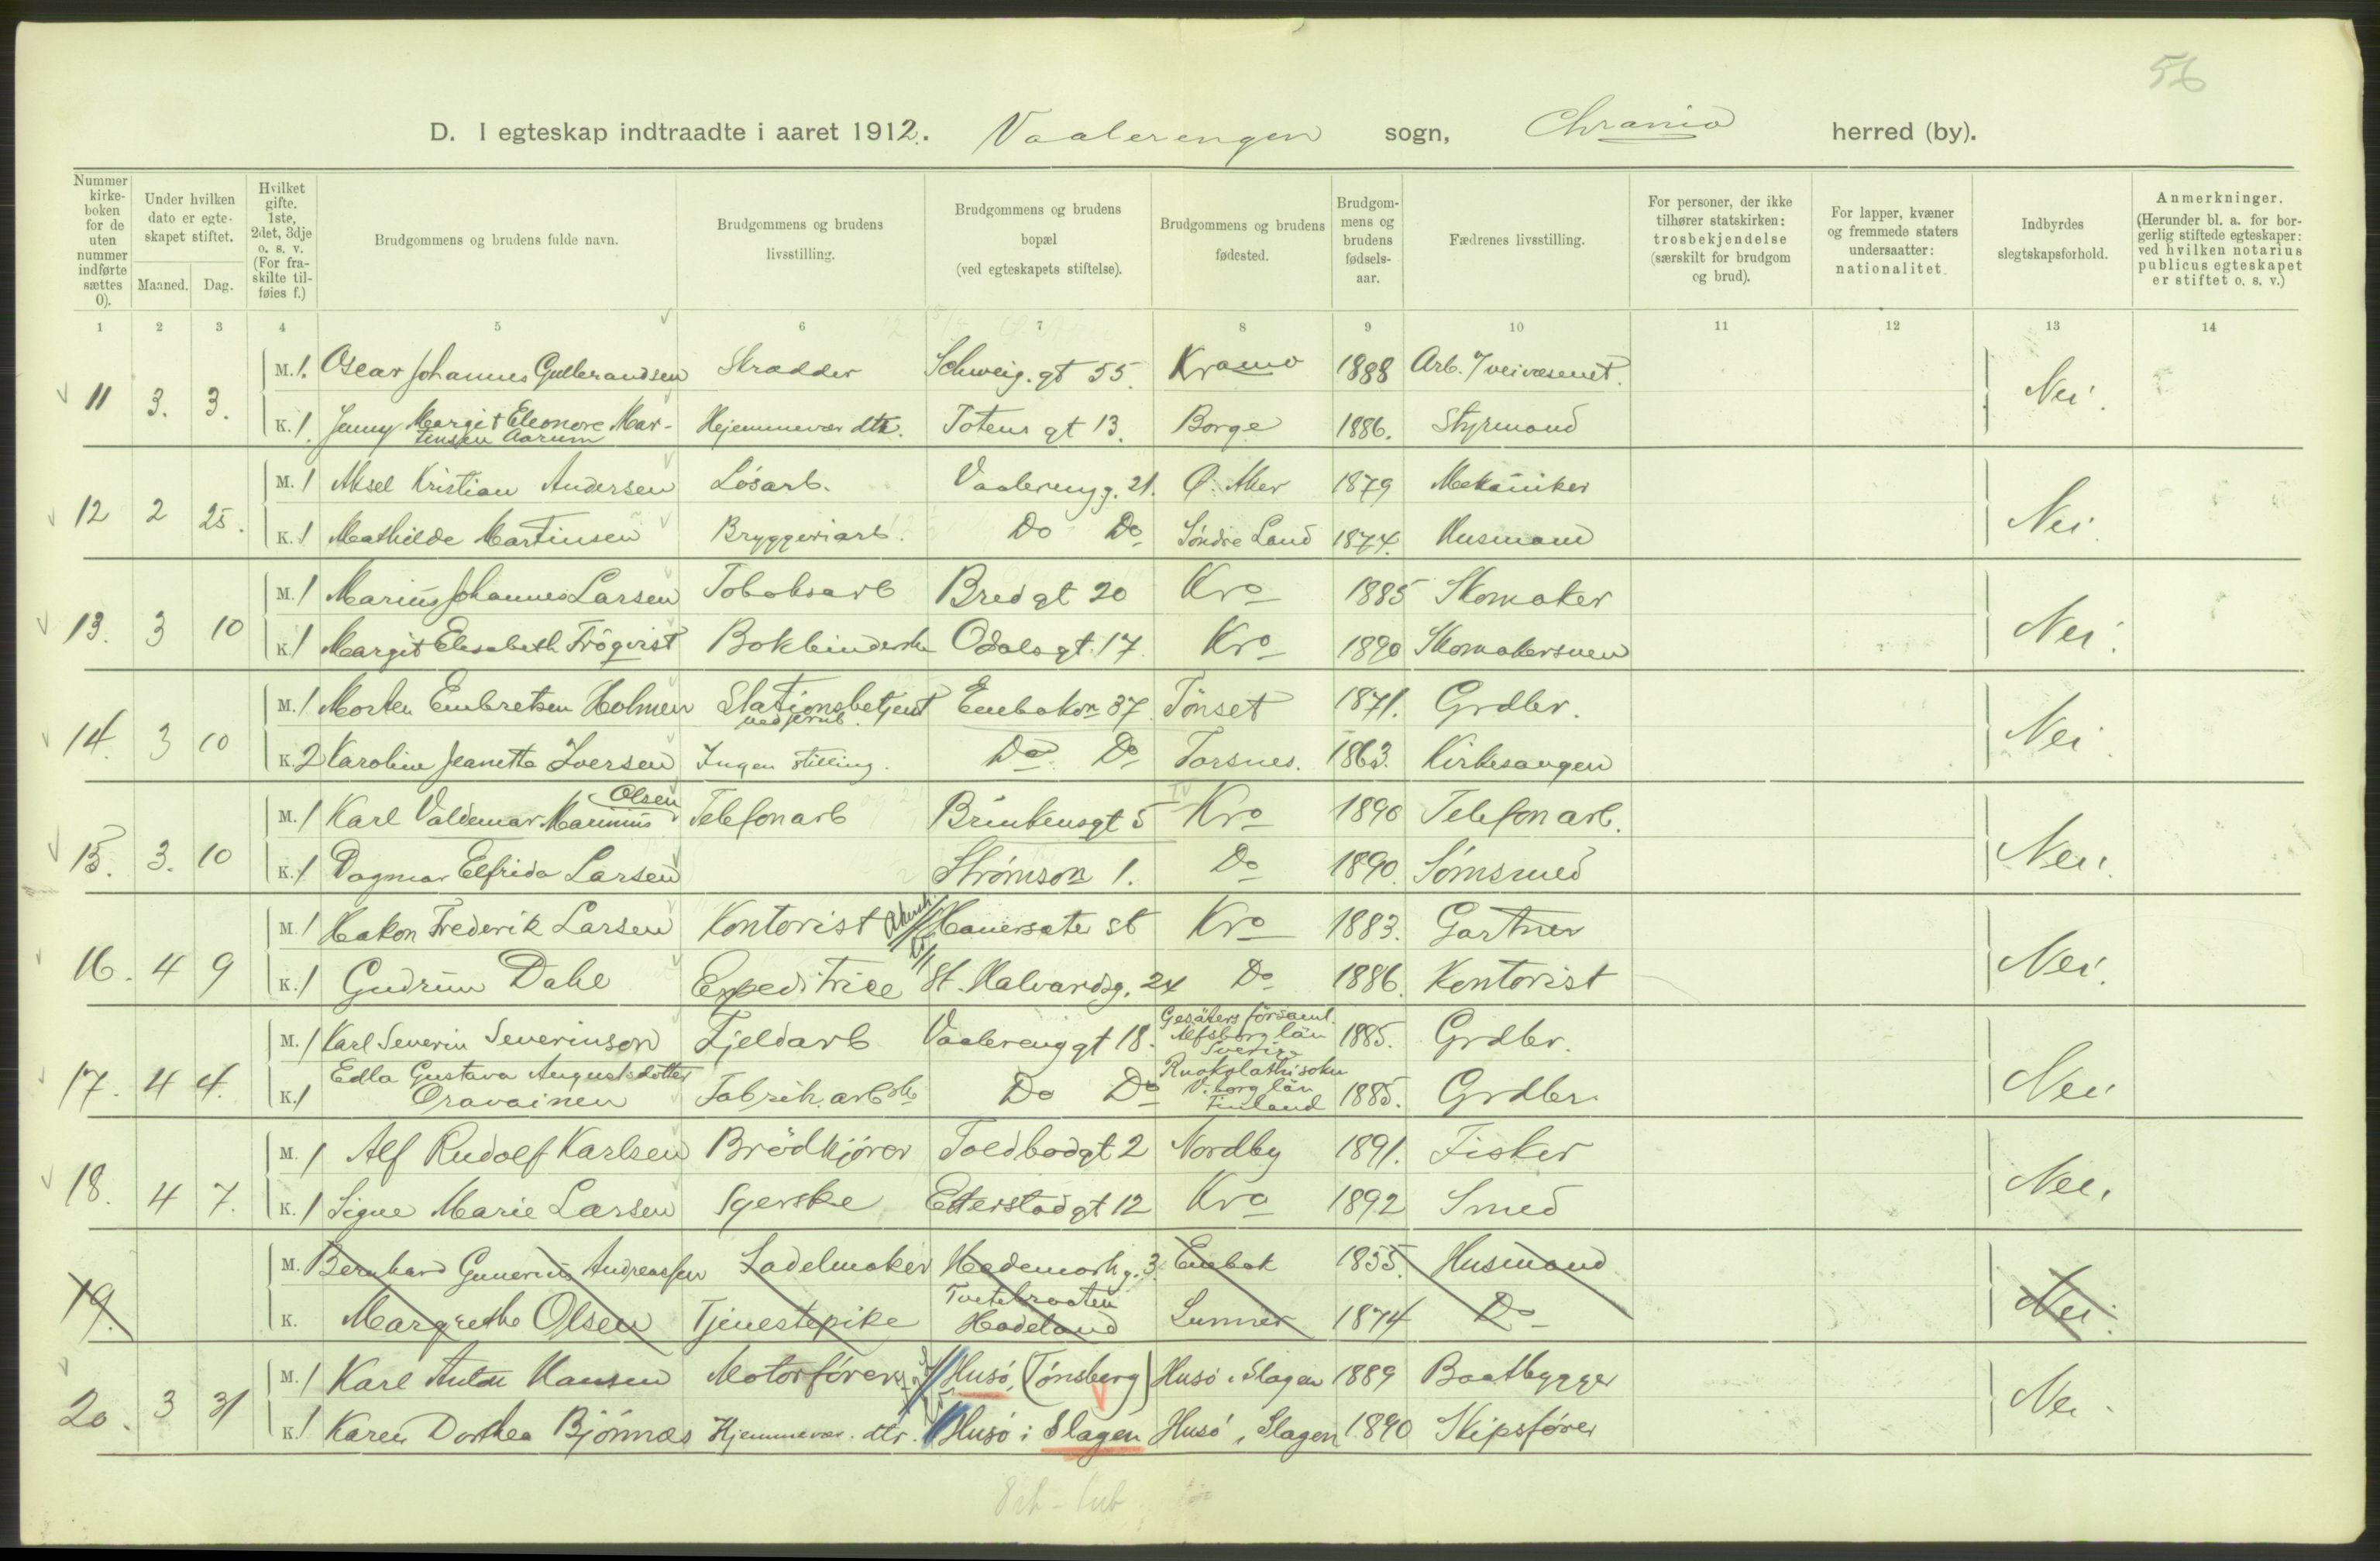 56
D. I egteskap indtraadte i aaret 1912. Vaalerengen sogn, Chrania herred (by).
Nummer kirke-boken for de uten nummer indførte sættes 0).
Under hvilken dato er egte-skapet stiftet.
Maaned. Dag.
Hvilket gifte. 1ste, 2det, 3dje o. s. v. (For fra-skilte til-føies f.)
Brudgommens og brudens fulde navn.
Brudgommens og brudens livsstilling.
Brudgommens og brudens bopæl (ved egteskapets stiftelse).
Brudgommens og brudens fødested.
Brudgom-mens og brudens fødsels-aar.
Fædrenes livsstilling.
For personer, der ikke tilhører statskirken: trosbekjendelse (særskilt for brudgom og brud).
For lapper, kvæner og fremmede staters undersaatter: nationalitet.
Indbyrdes slegtskapsforhold.
Anmerkninger. (Herunder bl. a. for bor-gerlig stiftede egteskaper: ved hvilken notarius publicus egteskapet er stiftet o. s. v.)
1 2 3 4 5 6 7 8 9 10 11 12 13 14
M. 1. Oscar Johannes Gulbrandsen Skrædder Schweig. gt 55. Kr 1888 Arb. i veivæsenet.
11 3. 3. Nei.
K. 1. Jenny Margit Eleonore Mar-tensen Aarum Hjemmevær dtr. Totens gt 13. Borge 1886. Styrmand
M. 1 Aksel Kristian Andersen Løsarb. Vaalereng g. 21. Ø. Aker 1879 Mekaniker
12 2 25. Nei
K. 1 Mathilde Martinsen Bryggeriarb. Do Do Søndre Land 1874. Husmand
M. 1 Marius Johannes Larsen Tobaksarb Bredgt 20 Kra 1885 Skomaker
13. 3 10 Nei.
K. 1 Margit Elisabeth Fröqvist Bokbinderske Odalsgt. 17 Kra 1890 Skomakersven
M. 1 Morten Embretsen Holmen Stationsbetjent ved jernb. Enebakv 37. Tönset 1871. Grdbr.
14. 3 10 Nei
K. 2 Karoline Jeanette Iversen Ingen stilling. Do Do Torsnes. 1863. Kirkesanger
M. 1 Karl Valdemar Marinius Olsen Telefonarb Brinkensgt 5 Kra 1890 Telefonarb.
15. 3. 10 Nei.
K. 1 Dagmar Elfrida Larsen Strømsvn 1. Do 1890. Sömsmed
M. 1 Hakon Frederik Larsen Kontorist Akersh. Hauersæter st Kra 1883. Gartner
16. 4 9 Nei.
K. 1 Gudrun Dahl Expeditrice St. Halvardsg. 24 Do 1886. Kontorist
M. 1 Karl Severin Severinson Fjeldarb Vaalerenggt 18. Gesäters församl. Elfsborg län Sverige 1885. Grdbr.
17. 4 4. Nei
K. 1 Edla Gustava Augustsdotter Oravainen Fabrik. arbske Do Do Ruokolathi sokn Viborg län Finland 1885. Grdbr.
M. 1 Alf Rudolf Karlsen Brödkjörer Toldbodgt 2 Nordby 1891. Fisker
18. 4 7. Nei.
K. 1 Signe Marie Larsen Syerske Etterstadgt 12 Kra 1892 Smed
M. Bernhard Gunerius Andreassen Sadelmaker Hedemark g. 3. Enebak 1855. Husmand
19. Nei.
K. Margrethe Olsen Tjenestepike Tvetebraaten Hadeland Lunner 1874 Do
M. 1 Karl Anton Hansen Motorförer Husö, (Tönsberg) Husö i Slagen 1889 Baatbygger
20. 3 31 Nei.
K. 1 Karen Dorthea Björnnæs Hjemmevær. dtr. Husö i Slagen Husö i Slagen 1890 Skipsförer